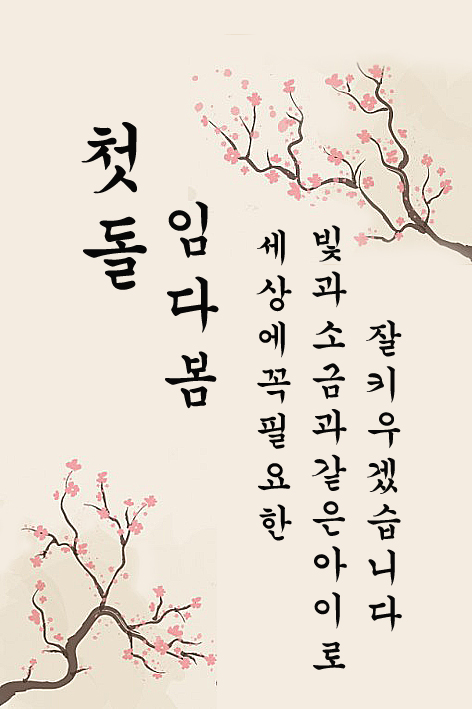 첫돌
임다봄
세상에꼭필요한
빛과소금과같은아이로
잘키우겠습니다